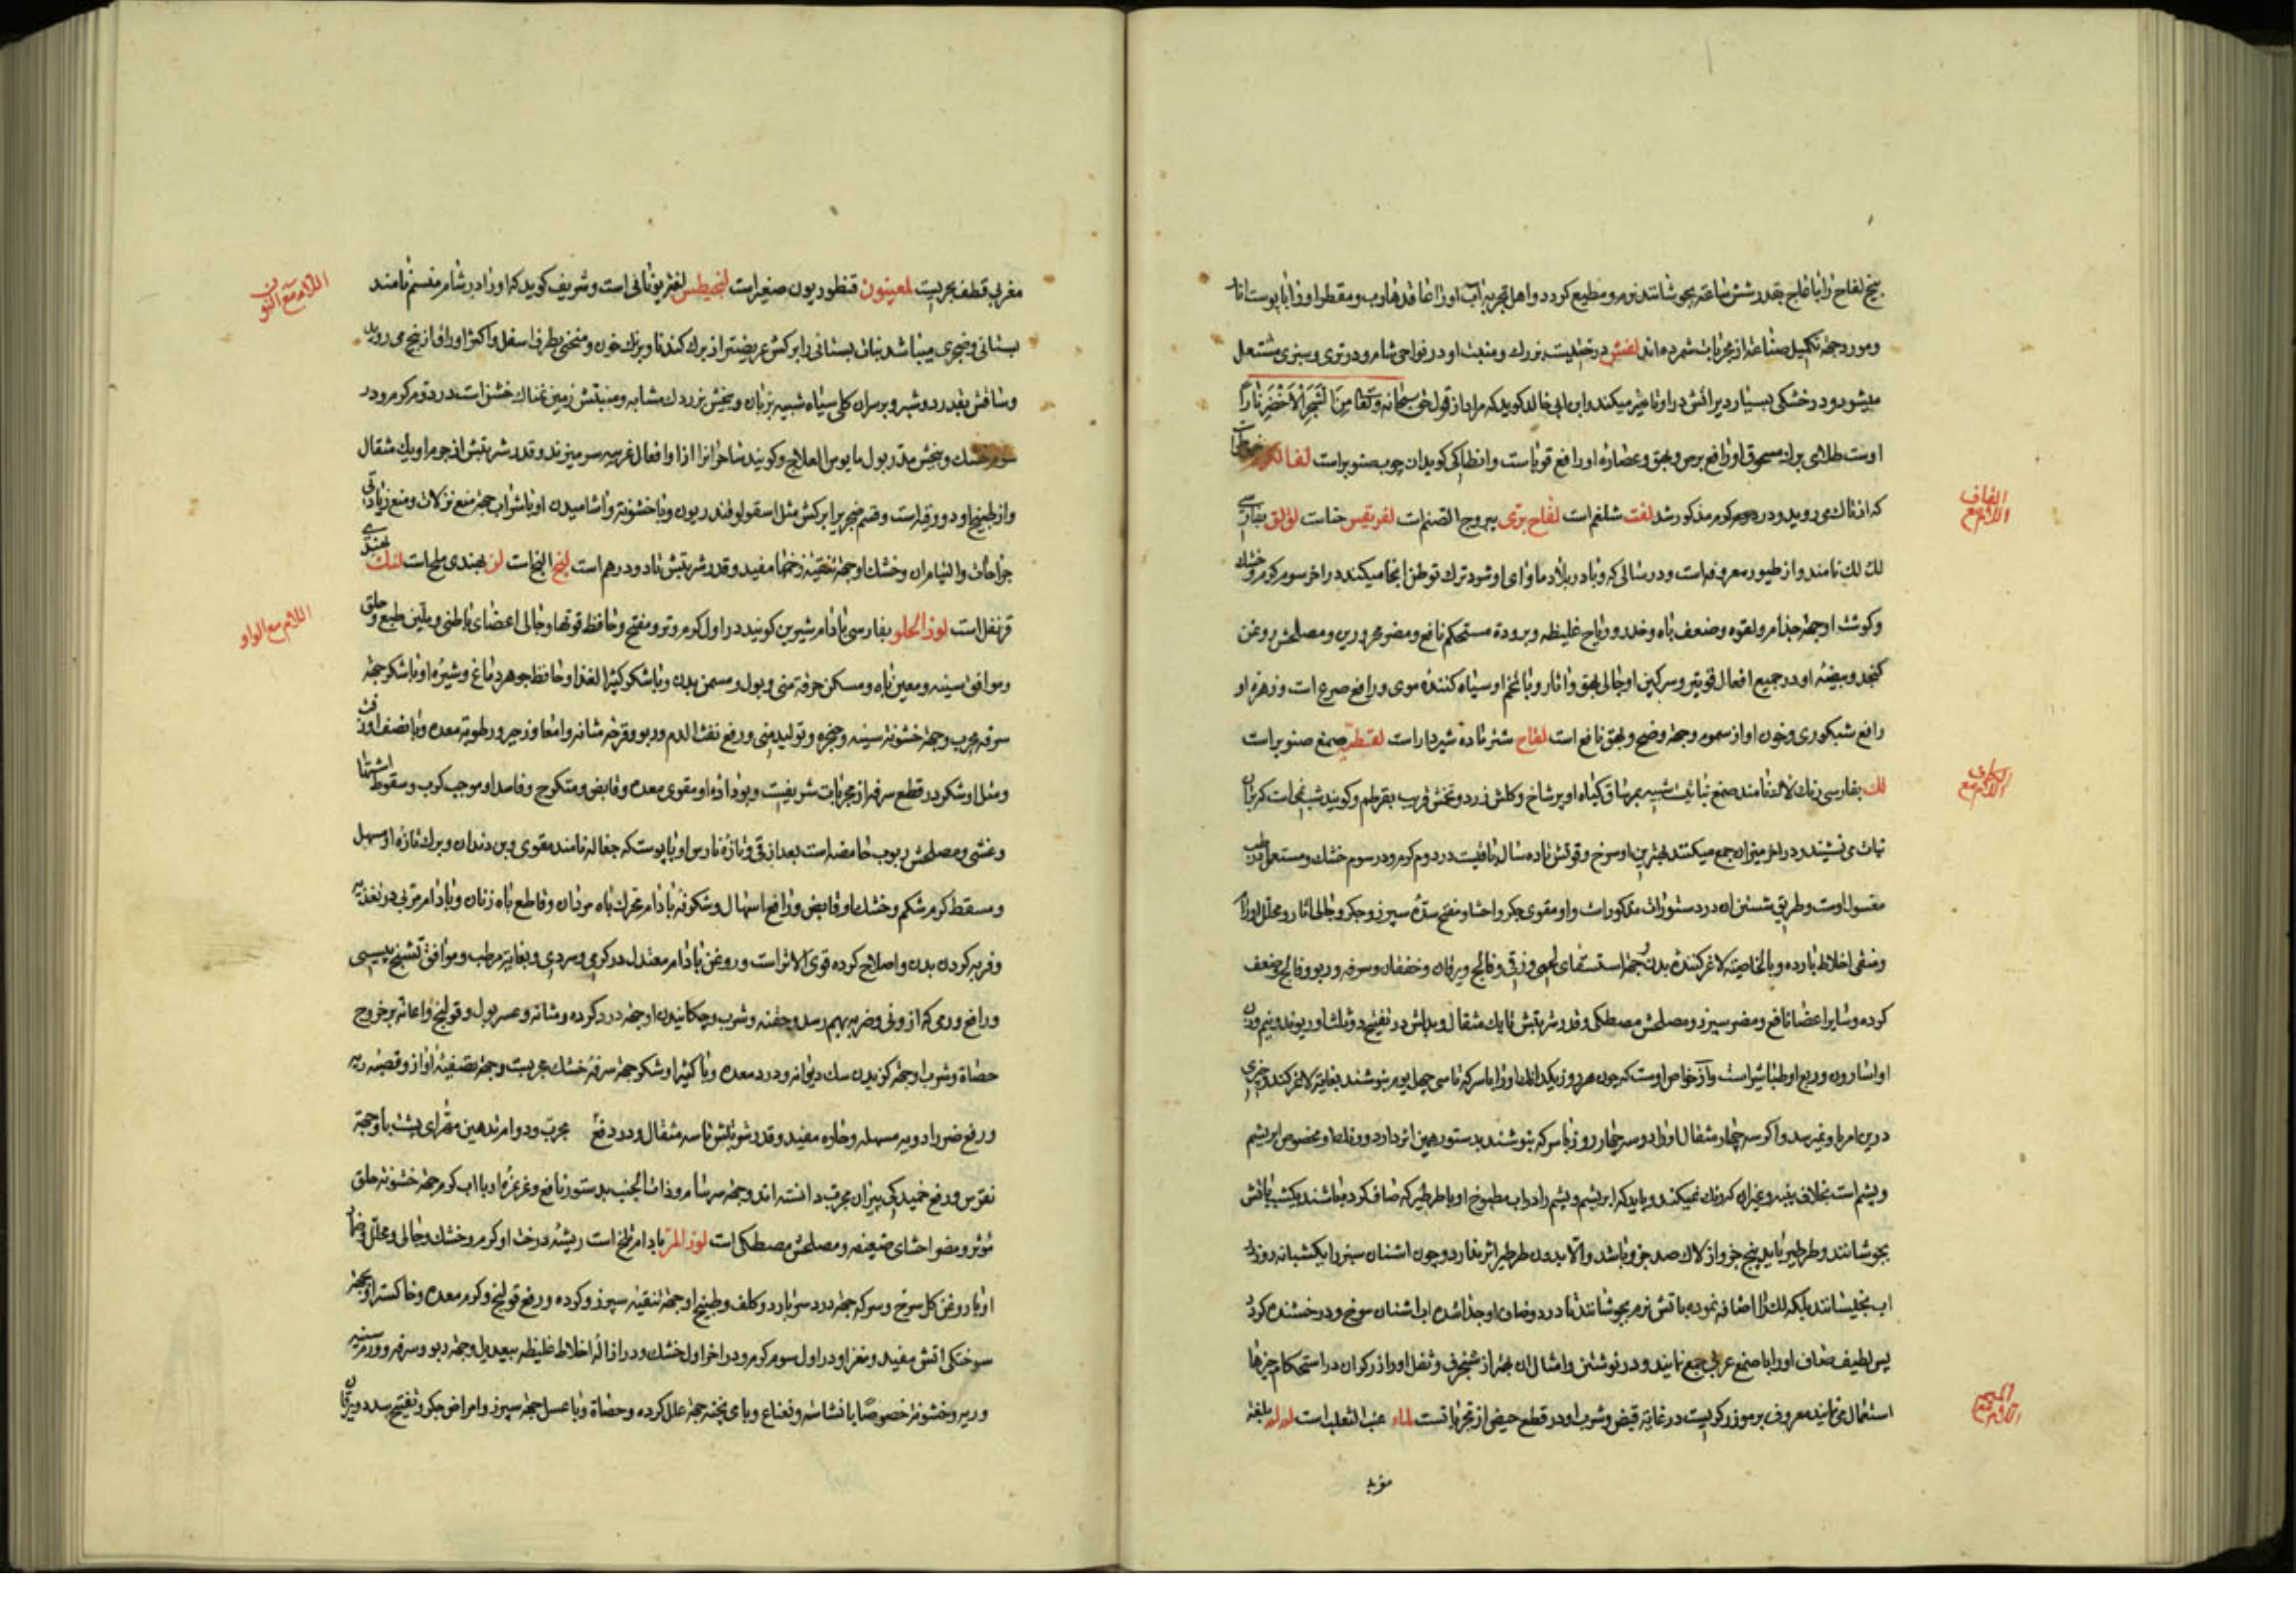 بیخ لفاح را با عاج بقدر شش ساعت بجوشانند نرم و مطیع کردد و اهل تجربه آب او را عاقد هارب و مقطر او را با پوست انار
و مورد جهة تکمیل صناعة از مجربات شمرده‌اند لغش درختیست بزرک و منبت او در نواحی شام و در تری و سبزی مشتعل
میشود و در خشکی بسیار دیر آتش در او تاثیر میکند و ابن ابی خالد کوید که مراد از قول حق سبحانه و تعالی من الشجر الاخضر نارا
اوست طلای براده مسحوق او رافع برص و بهق و عصاره او رافع قوباست و انطاکی کوید آن چوب صنوبر است لفا الکرم
که از تاک می روید و در کرم مذکور شد لفت شلغم است لفاح بری یبروج الصنم است لفریقس حناست لقلق بفارسی
لک لک نامند و از طیور معروفه است و در سالی که وبا در بلاد ماوای او شود ترک توطن انجا میکند در اخر سوم کرم و خشک
و کوشت او جهة جذام و لقوه و ضعف باه و خدر و ریاح غلیظه و برودة مستحکم نافع و مضر محرورین و مصلحش روغن
کنجد و بیضه او در جمیع افعال قویتر و سرکین او جالی بهق و اثار و با تخم او سیاه کننده موی و رافع صرع است و زهره او
رافع شبکوری و خون او از سموم و جهة وضح و بهق نافع است لقاح شتر ماده شیردار است صمغ صنوبر است
لک بفارسی رنک لاک نامند صمغ نباتیست شبیه بمر ساق کیاه او پر شاخ و کلش زرد و تخمش قریب بقرطم و کویند شبنم است که بران
نبات می نشیند و در اخر میزان جمع میکنند بهترین او سرخ و قوتش تا ده سال باقیست در دوم کرم و در سوم خشک و مستعمل در طب
مغسول اوست و طریق شستن ان در دستورات مذکور است و او مقوی جکر و احشا و مفتح سده سپرز و جکر و جالی اثار و محلل اورام
و منقی اخلاط بارده و بالخاصیه لاغر کننده بدن و جهة استسقای لحمی و زقی و فالج و یرقان و خفقان و سرفه و ربو و فالج و ضعف
کرده و سایر اعضا نافع و مضر سپرز و مصلحش مصطکی و قدر شربتش تا یک مثقال و بدلش در تفتیح دو ثلث او ریوند و نیم وزن
او اسارون و ربع او طباشیر است و از خواص اوست که چون هر روز یکدانک او را با سرکه تا سی چهل یوم بنوشند بغایة لاغر کند و چیزی
در این امر باو نمیرسد و اکر سه چهار مثقال او را دو سه چهار روز با سرکه بنوشند بدستور همین اثر دارد و رنک او مخصوص ابریشم
و پشم است بخلاف پنبه و غیر ان که رنک نمیکند و باید که ابریشم و پشم را در اب مطبوخ او با طرطیر که صاف کرده باشند یکشب با اتش
بجوشانند و طرطیر باید پنج جزو از لاک صد جزو باشد و الا بدون طرطیر اثر ندارد و چون اشنان سبز را یکشبانه روز در
اب بخیسانند بلکه لک را اضافه نموده با تش نرم بجوشانند تا درد و صاف او جدا شده اب اشنان سرخ و درخشنده کردد
پس لطیف صاف او را با صمغ عربی جمع نمایند و در نوشتن و امثال ان بهتر از شنجرف و ثفل او را زرکران در استحکام چیزها
استعمال می نمایند معروف برموز زرکریست در غایة قبض و شرب او در قطع حیض از مجربات است لماء عنب الثعلب است بلغة
مغربی
اللام مع الفاء
اللام مع القاف
اللام مع الکاف
اللام مع المیم
مغربی قطف بحریست لمعینون قنطوریون صغیر است لنجیطس لغة یونانی است و شریف کوید که او را در شام مفستم نامند
بستانی و صخری میباشد نبات بستانی را برکش عریضتر از برک کندنا و برنک خون و منحنی بطرف اسفل و اکثر اوراق از بیخ می روید
و ساقش بقدر دو شبر و بر سر ان کلی سیاه شبیه بزبان و بیخش بزردک مشابه و منبتش زمین نمناک خشن است در دوم کرم و در
سوم خشک و بیخش مدر بول مایوس العلاج و کویند ساحران را از او افعال غریبه سر میزند و قدر شربتش از جرم او یک مثقال
و از طبیخ او دو وقیه است و قسم صخری را برکش مثل اسقولوقندریون و با خشونة و اشامیدن او با شراب جهة منع نزلات و منع زیادتی
جراحات و التیام ان و خشک او جهة تنقیه زخمها مفید و قدر شربتش تا دو درهم است لنج النج است لن بهندی ملح است لنک بهندی
قرنفل است لوز الحلو بفارسی بادام شیرین کویند در اول کرم و تر و مفتح و حافظ قوتها و جالی اعضای باطنی و ملین طبع و حلق
و موافق سینه و معین باه و مسکن حرقة منی و بول و مسمن بدن و با شکر کثیر الغذا و حافظ جوهر دماغ و شیره او با شکر جهة
سرفه مجرب و جهة خشونة سینه و حنجره و تولید منی و رفع نفث الدم و ربو و قرحه مثانه و امعا و زحیر و رطوبة معده و با نصف وزن
و مثل او شکر در قطع سرفه از مجربات شریفیست و بوداده او مقوی معده و قابض و متکرج و فاسد او موجب کرب و سقوط اشتها
و غشی و مصلحش ربوب حامضه است بعد از قی و تازه نارس او با پوست که چغاله نامند مقوی و بن دندان و برک تازه او مسهل
و مسقط کرم شکم و خشک او قابض و رافع اسهال و شکوفه بادام محرک باه مردان و قاطع باه زنان و بادام مربی در تغذیه
و فربه کردن بدن و اصلاح کرده قوی الاثر است و روغن بادام معتدل در کرمی و سردی و بغایة مرطب و موافق تشنج یبسی
و رافع ورمی که از وثی و ضربه بهم رسد و حقنه و شرب و چکانیدن او جهة درد کرده و مثانه و عسر بول و قولنج و اعانة بر خروج
حصاة و شرب او جهة کزیدن سک دیوانه و درد معده و با کثیرا و شکر جهة سرفه خشک مجربست و جهة تصفیه اواز و قصبه ریه
و رفع ضرر ادویه مسهله و حاره مفید و قدر شربتش تا سه مثقال و در دفع مجرب و دوام تدهین فقرای پشت با او جهة
نقرس و رفع خمیدکی پیران مجرب دانسته اند و جهة سرسام و ذات الجنب بدستور نافع و غرغره او با اب کرم جهة خشونة حلق
مؤثر و مضر احشای ضعیفه و مصلحش مصطکی است لوز المر بادام تلخ است ریشه درخت او کرم و خشک و جالی و محلل و ضماد
او با روغن کل سرخ و سرکه جهة درد سر بارد و کلف و طبیخ او جهة تنقیه سپرز و کرده و رفع قولنج و کرم معده و خاکستر او جهة
سوختکی اتش مفید و مغز او در اول سوم کرم و در اخر اول خشک و در ازاله اخلاط غلیظه بیعدیل و جهة ربو و سرفه و ورم سینه
و ریه و خشونة خصوصا با نشاسته و نعناع و با می پخته جهة علل کرده و حصاة و با عسل جهة سپرز و امراض جکر و تفتیح سدد و یرقان
اللام مع النون
اللام مع الواو